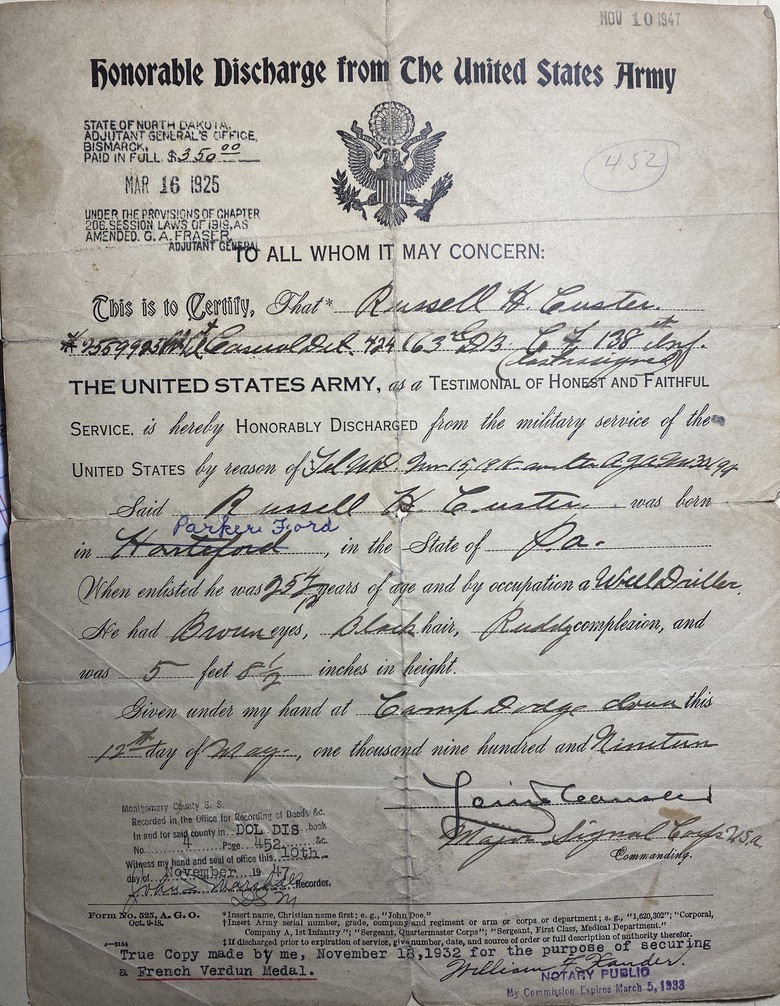 NOV 10 1947
Honorable Discharge from The United States Army
STATE OF NORTH DAKOTA,
ADJUTANT GENERAL'S OFFICE,
BISMARCK,
PAID IN FULL $350 00
MAR 16 1925
UNDER THE PROVISIONS OF CHAPTER
206, SESSION LAWS OF 1919, AS
AMENDED. G. A. FRASER,
ADJUTANT GENERAL
452
TO ALL WHOM IT MAY CONCERN:
This is to Certify, That* Russell H. Custer.
Casual Det. 424 (163rd D.B. 138th Inf.
(last assigned)
THE UNITED STATES ARMY, as a TESTIMONIAL OF HONEST AND FAITHFUL
SERVICE, is hereby HONORABLY DISCHARGED from the military service of the
UNITED STATES by reason of‡ Tel. W.D. Nov 15,
Said Russell H. Custer was born
Parker Ford
in Harteford, in the State of Pa.
When enlisted he was 25 years of age and by occupation a Well Driller.
He had Brown eyes, Black hair, Ruddy complexion, and
was 5 feet 8 1/2 inches in height.
Given under my hand at Camp Dodge Iowa this
12th day of May, one thousand nine hundred and Nineteen
Major Signal Corps U.S.A.
Commanding.
Montgomery County S. S.
Recorded in the Office for Recording of Deeds &c.
In and for said county in DOL DIS book
No. 4 Page 452 &c.
Witness my hand and seal of office this 10th
day of November 1947
Recorder.
Form No. 525, A. G. O.
Oct. 9-18.
*Insert name, Christian name first; e. g., "John Doe."
†Insert Army serial number, grade, company and regiment or arm or corps or department; e. g., "1,620,302"; "Corporal,
Company A, 1st Infantry"; "Sergeant, Quartermaster Corps"; "Sergeant, First Class, Medical Department."
‡If discharged prior to expiration of service, give number, date, and source of order or full description of authority therefor.
3—3164
True Copy made by me, November 18,1932 for the purpose of securing
a French Verdun Medal.
NOTARY PUBLIC
My Commission Expires March 5, 1933